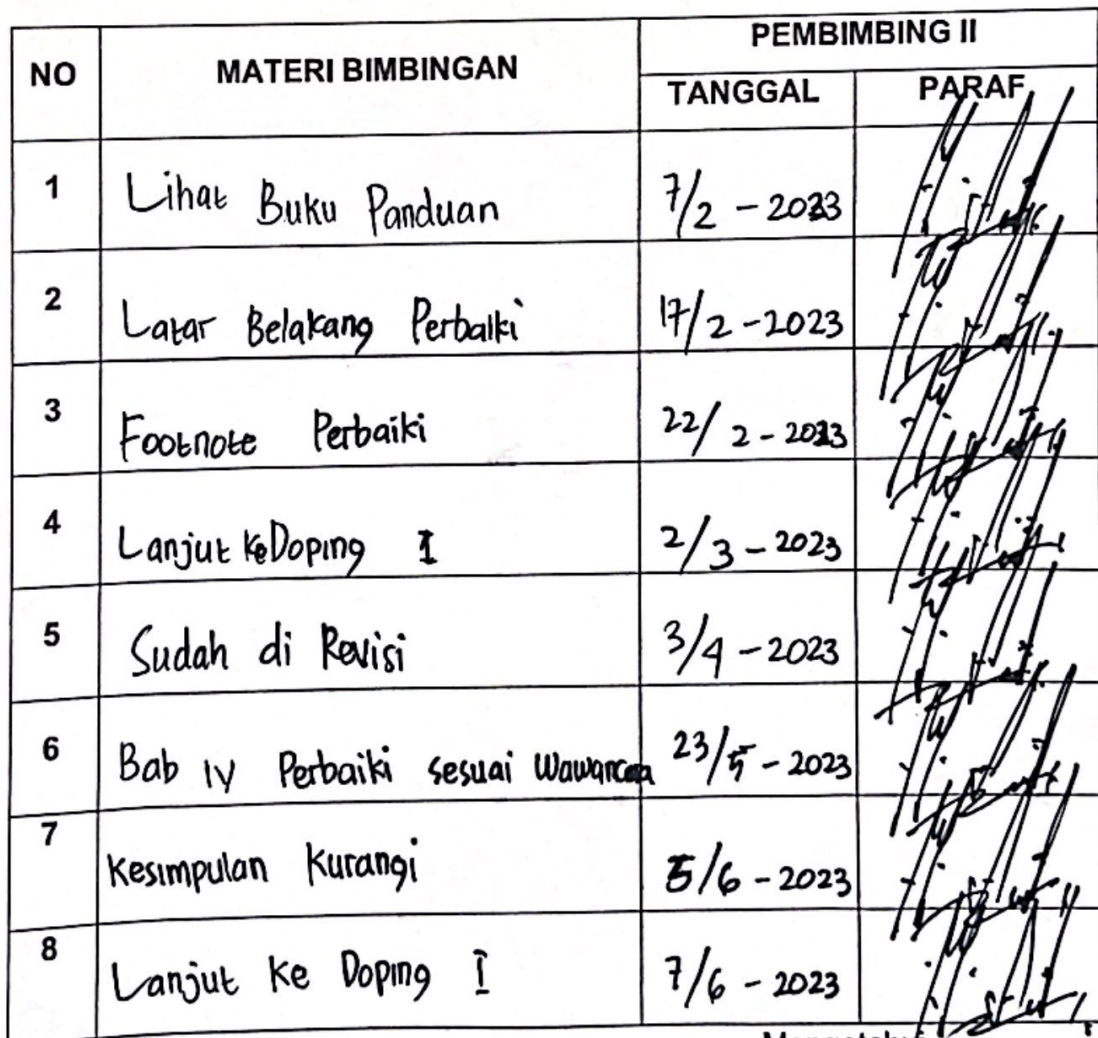 NO MATERI BIMBINGAN PEMBIMBING II
TANGGAL PARAF
1 Lihat Buku Panduan 7/2 - 2023
2 Latar Belakang Perbaiki 17/2 - 2023
3 Footnote Perbaiki 22/2 - 2023
4 Lanjut Ke Doping I 2/3 - 2023
5 Sudah di Revisi 3/4 - 2023
6 Bab IV Perbaiki sesuai Wawancara 23/5 - 2023
7 Kesimpulan Kurangi 5/6 - 2023
8 Lanjut Ke Doping I 7/6 - 2023